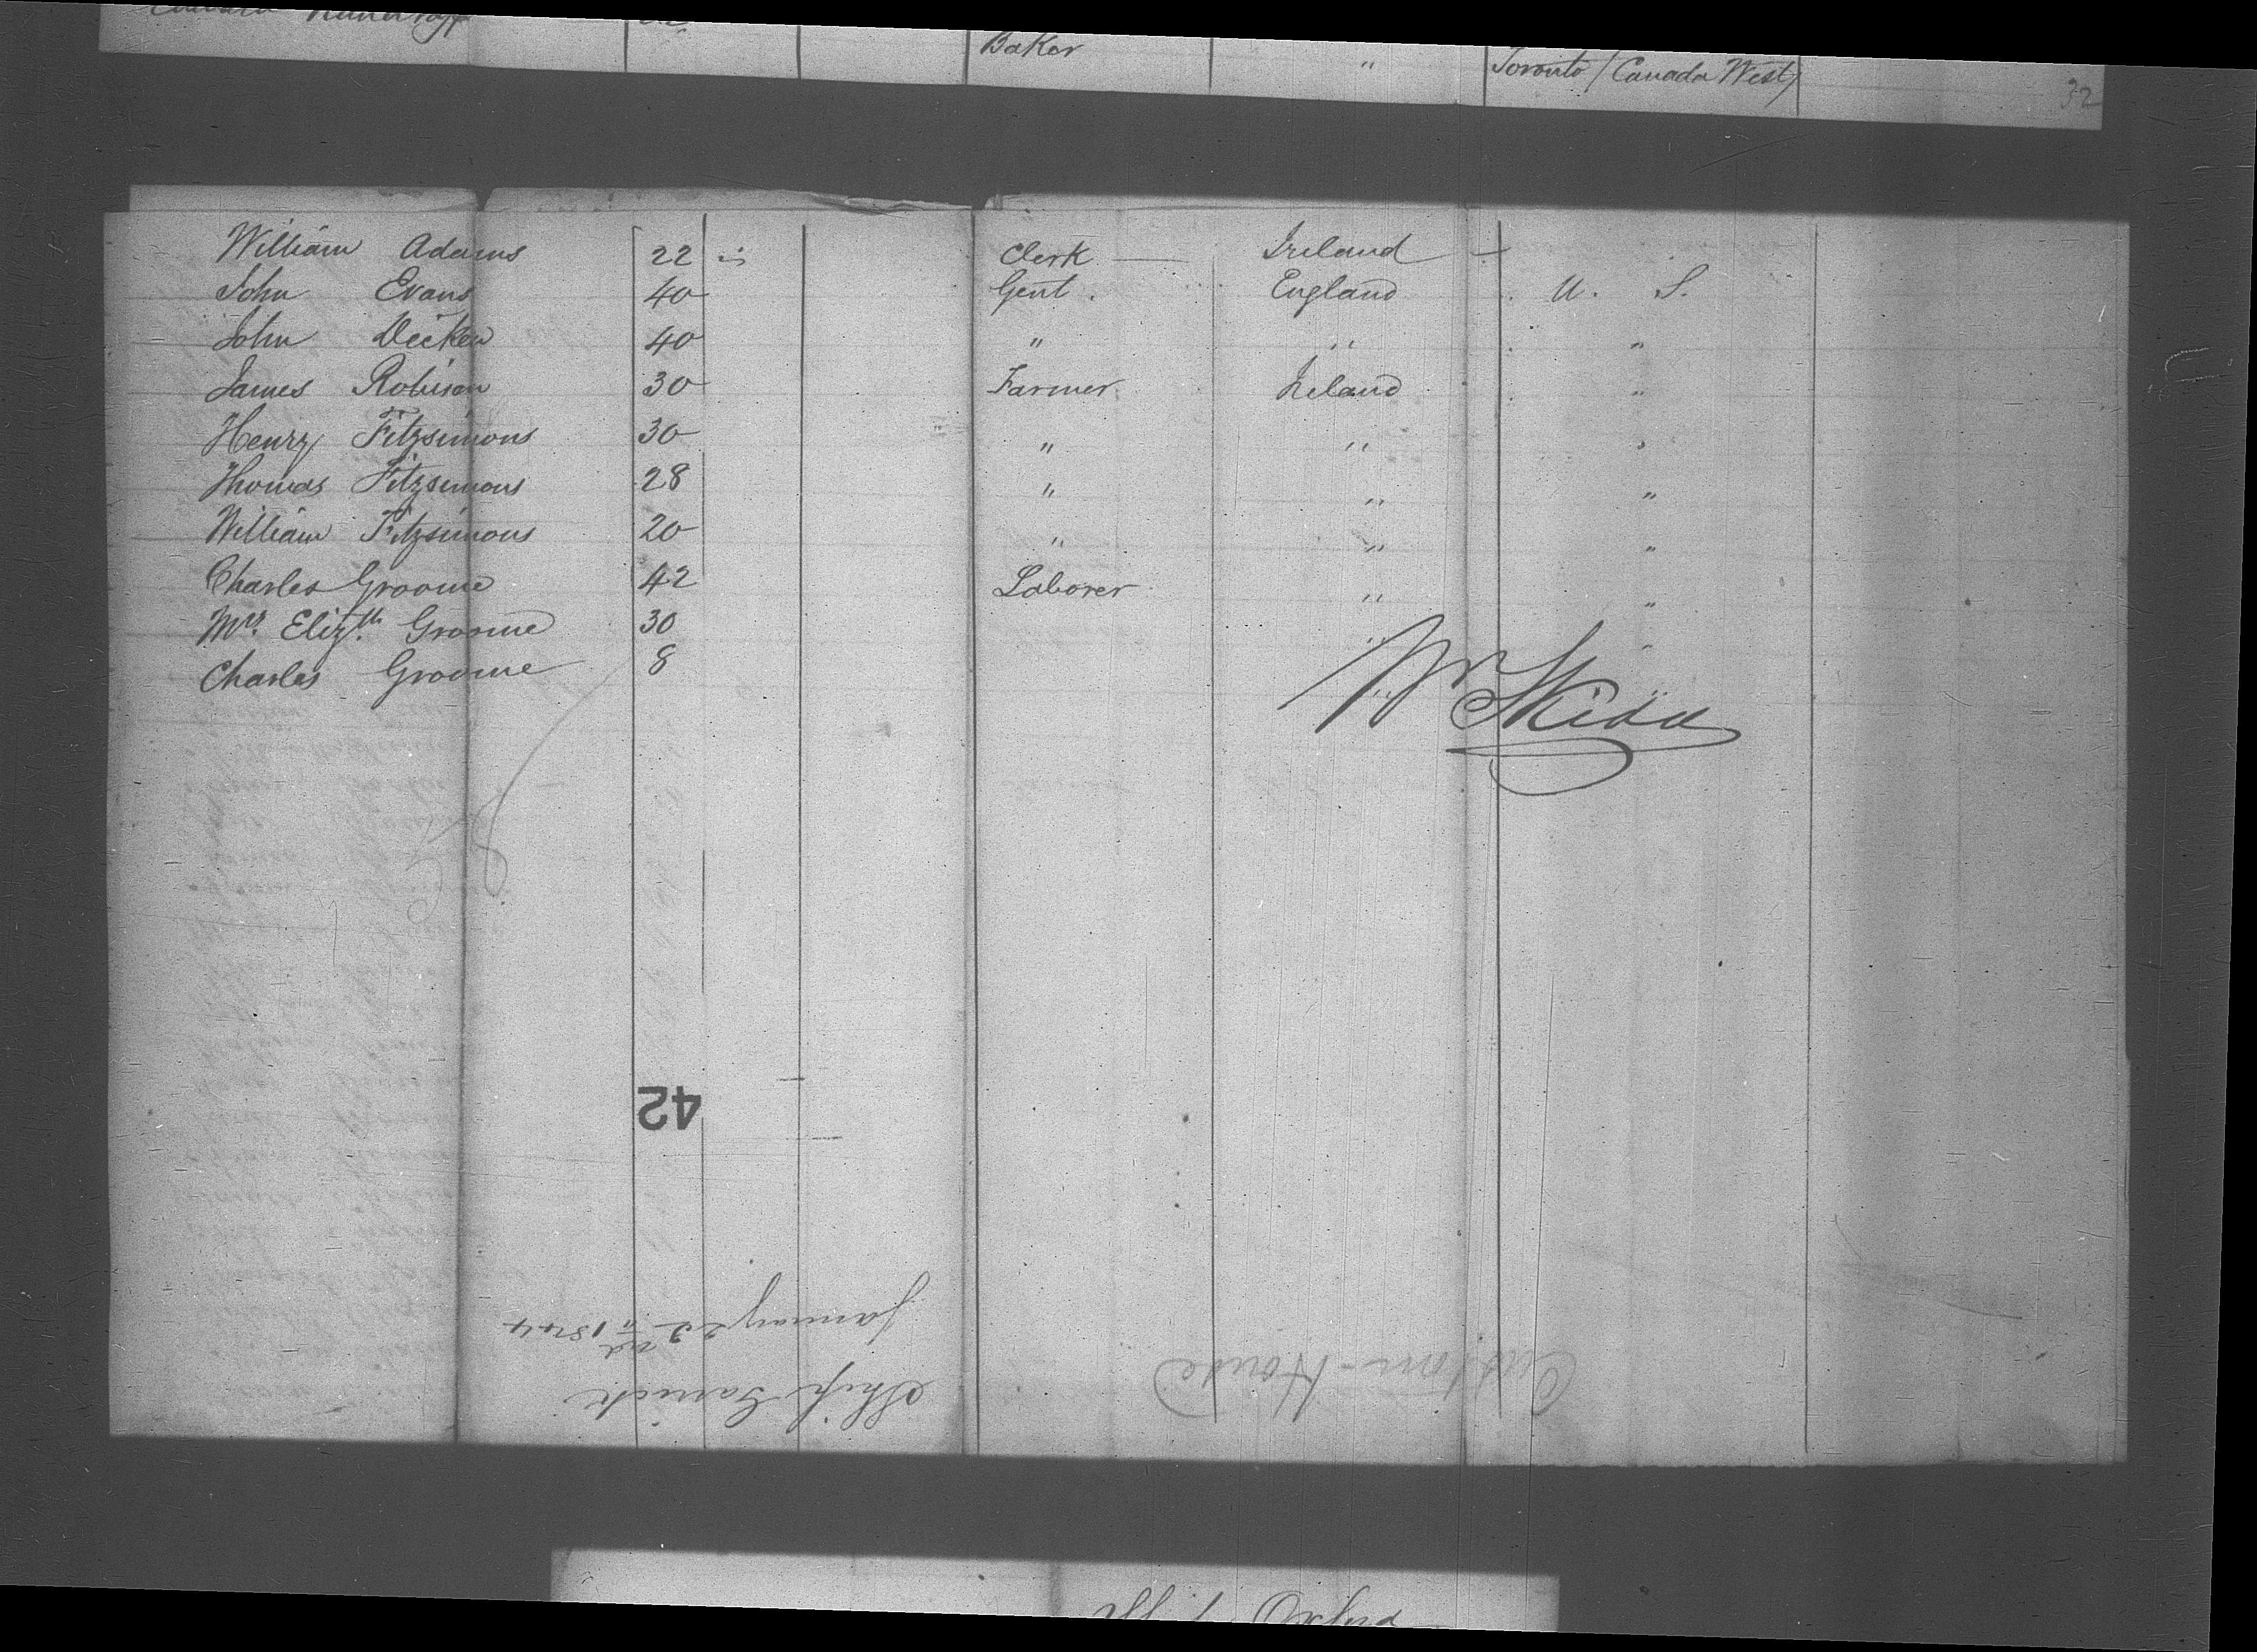 Baker " Toronto (Canada West)
32
William Adams 22 Clerk — Ireland —
John Evans 40 Gent. England U. S.
John Decken 40 " " "
James Robinson 30 Farmer Ireland "
Henry Fitzsimons 30 " " "
Thomas Fitzsimons 28 " " "
William Fitzsimons 20 " " "
Charles Groome 42 Laborer " "
Mrs. Elizth. Groome 30 " "
Charles Groome 8 " "
Wm Skidd
42
Custom-House
Ship Garrick
January 22nd 1844
Oxford